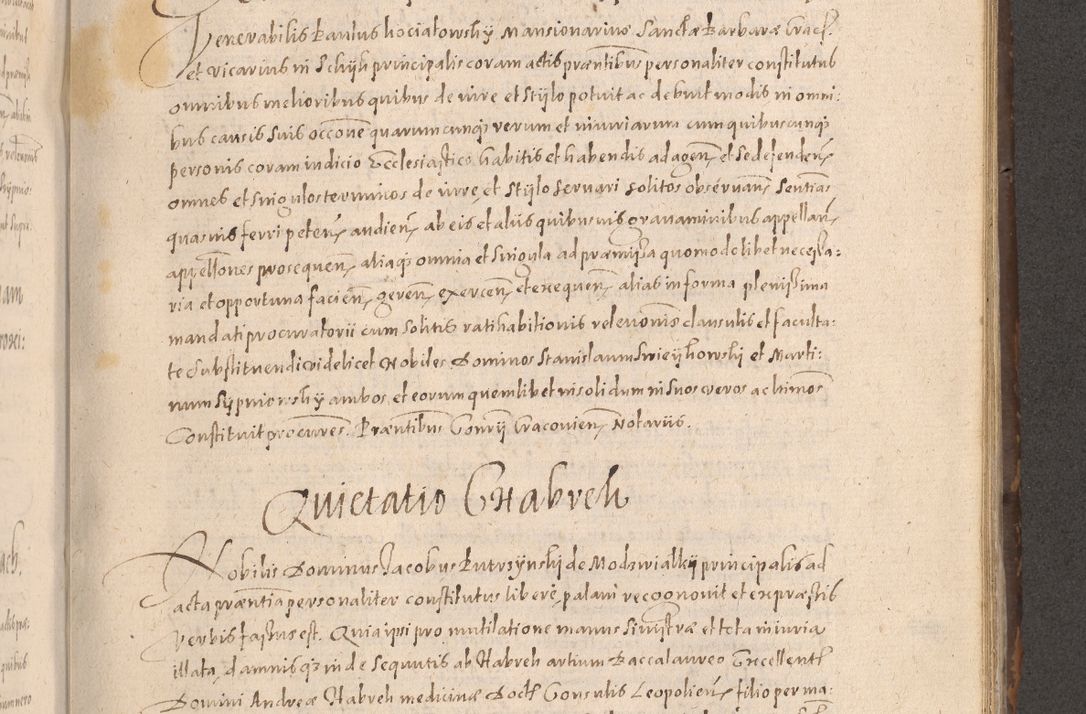 Venerabilis Paulus Kociałowsky Mansionarius Sanctæ Barbaræ Crac.
et vicarius in Schijk principalis coram actis præntibus personaliter constitutus
omnibus melioribus quibus de iure et Stylo potuit ac debuit modis in omni:
bus causis suis occone quarumcunqs rerum et iniuriarum cum quibuscunqs
personis coram iudicio Ecclesiastico habitis et habendis ad agen et se defenden
omnes et singulos terminos de iure et stylo servari solitos observan Sentias
quasuis ferri peten audien ab eis et aliis quibusuis grauaminibus appellan
appellones prosequen aliaqs omnia et Singula ad præmissa quomodolibet necessa:
ria et opportuna facien geren exercen et exequen alias in forma plenissima
mandati procuratorii cum solitis ratihabitionis releuonis clausulis et faculta:
te substituendi videlicet Nobiles Dominos Stanislaum Swieykowski et Marti:
num Sypniowsky ambos et eorum quemlibet insolidum in suos veros ac ltimos
Constituit procures. Præntibus Conrij Cracovien Notariis.
Quietatio CHabreh
Nobilis Dominus Jacobus Kutrzynskij de Modzwialkij principalis ad
acta præntia personaliter constitutus libere, palam recognovit et expræssis
verbis fassus est. Quia ipsi pro mutilatione manus Sinistræ et tota iniuria
illata, damnisqs inde sequutis ab Habreh artium Baccalaureo Excellentis
Domini Andreæ Habreh medicinæ Doct Consulis Leopolien filio per ma: